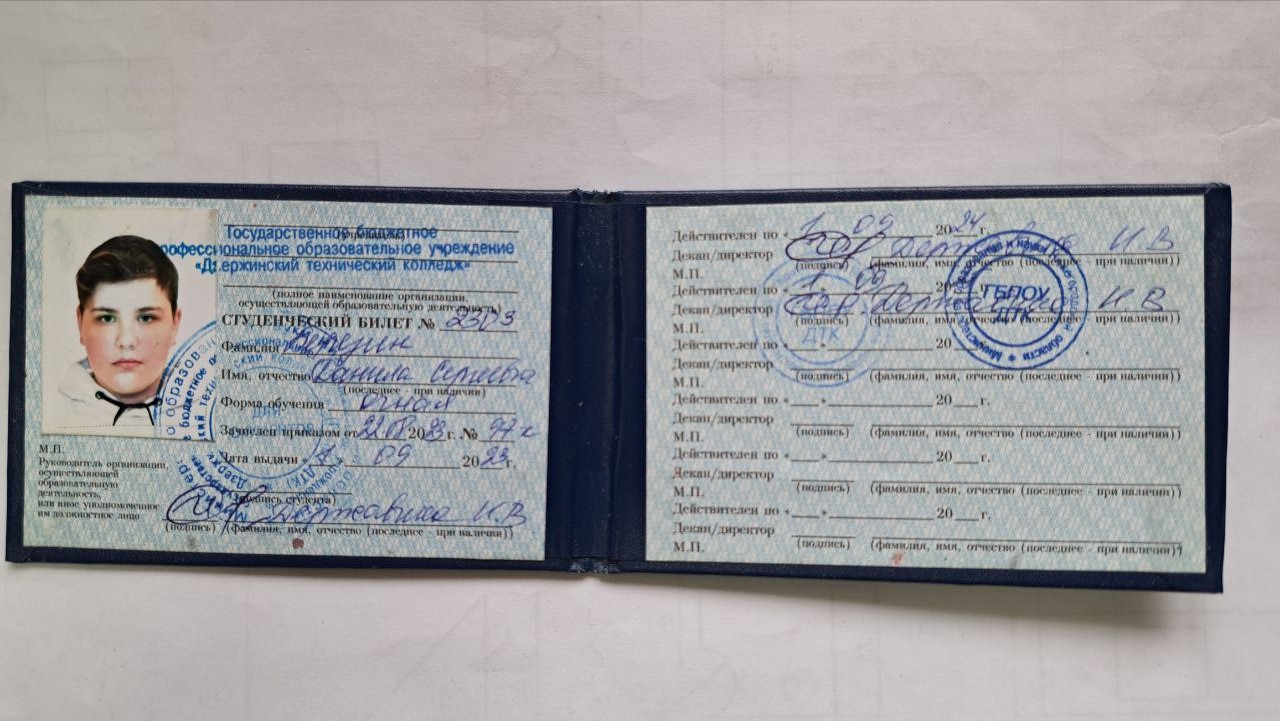 Государственное бюджетное
профессиональное образовательное учреждение
«Дзержинский технический колледж»
(полное наименование организации,
осуществляющей образовательную деятельность)
СТУДЕНЧЕСКИЙ БИЛЕТ № 2303
Фамилия
Имя, отчество Данила Сергеевич
(последнее - при наличии)
Форма обучения очная
Зачислен приказом от 22.08 2023 г. № 97
Дата выдачи « 1 » 09 2023 г.
(подпись студента)
М.П.
Руководитель организации,
осуществляющей
образовательную
деятельность,
или иное уполномоченное
им должностное лицо
Державина И.В
(подпись) (фамилия, имя, отчество (последнее - при наличии))
Действителен по « 1 » 09 2024 г.
Декан/директор Державина И В
(подпись) (фамилия, имя, отчество (последнее - при наличии))
М.П.
Действителен по « 1 » 20
Декан/директор Державина И В
(подпись) (фамилия, имя, отчество (последнее - при наличии))
М.П.
ГБПОУ
ДТК
ДТК
Действителен по « » 20
Декан/директор
(подпись) (фамилия, имя, отчество (последнее - при наличии))
М.П.
Действителен по « » 20 г.
Декан/директор
(подпись) (фамилия, имя, отчество (последнее - при наличии))
М.П.
Действителен по « » 20 г.
Декан/директор
(подпись) (фамилия, имя, отчество (последнее - при наличии))
М.П.
Действителен по « » 20 г.
Декан/директор
(подпись) (фамилия, имя, отчество (последнее - при наличии))
М.П.